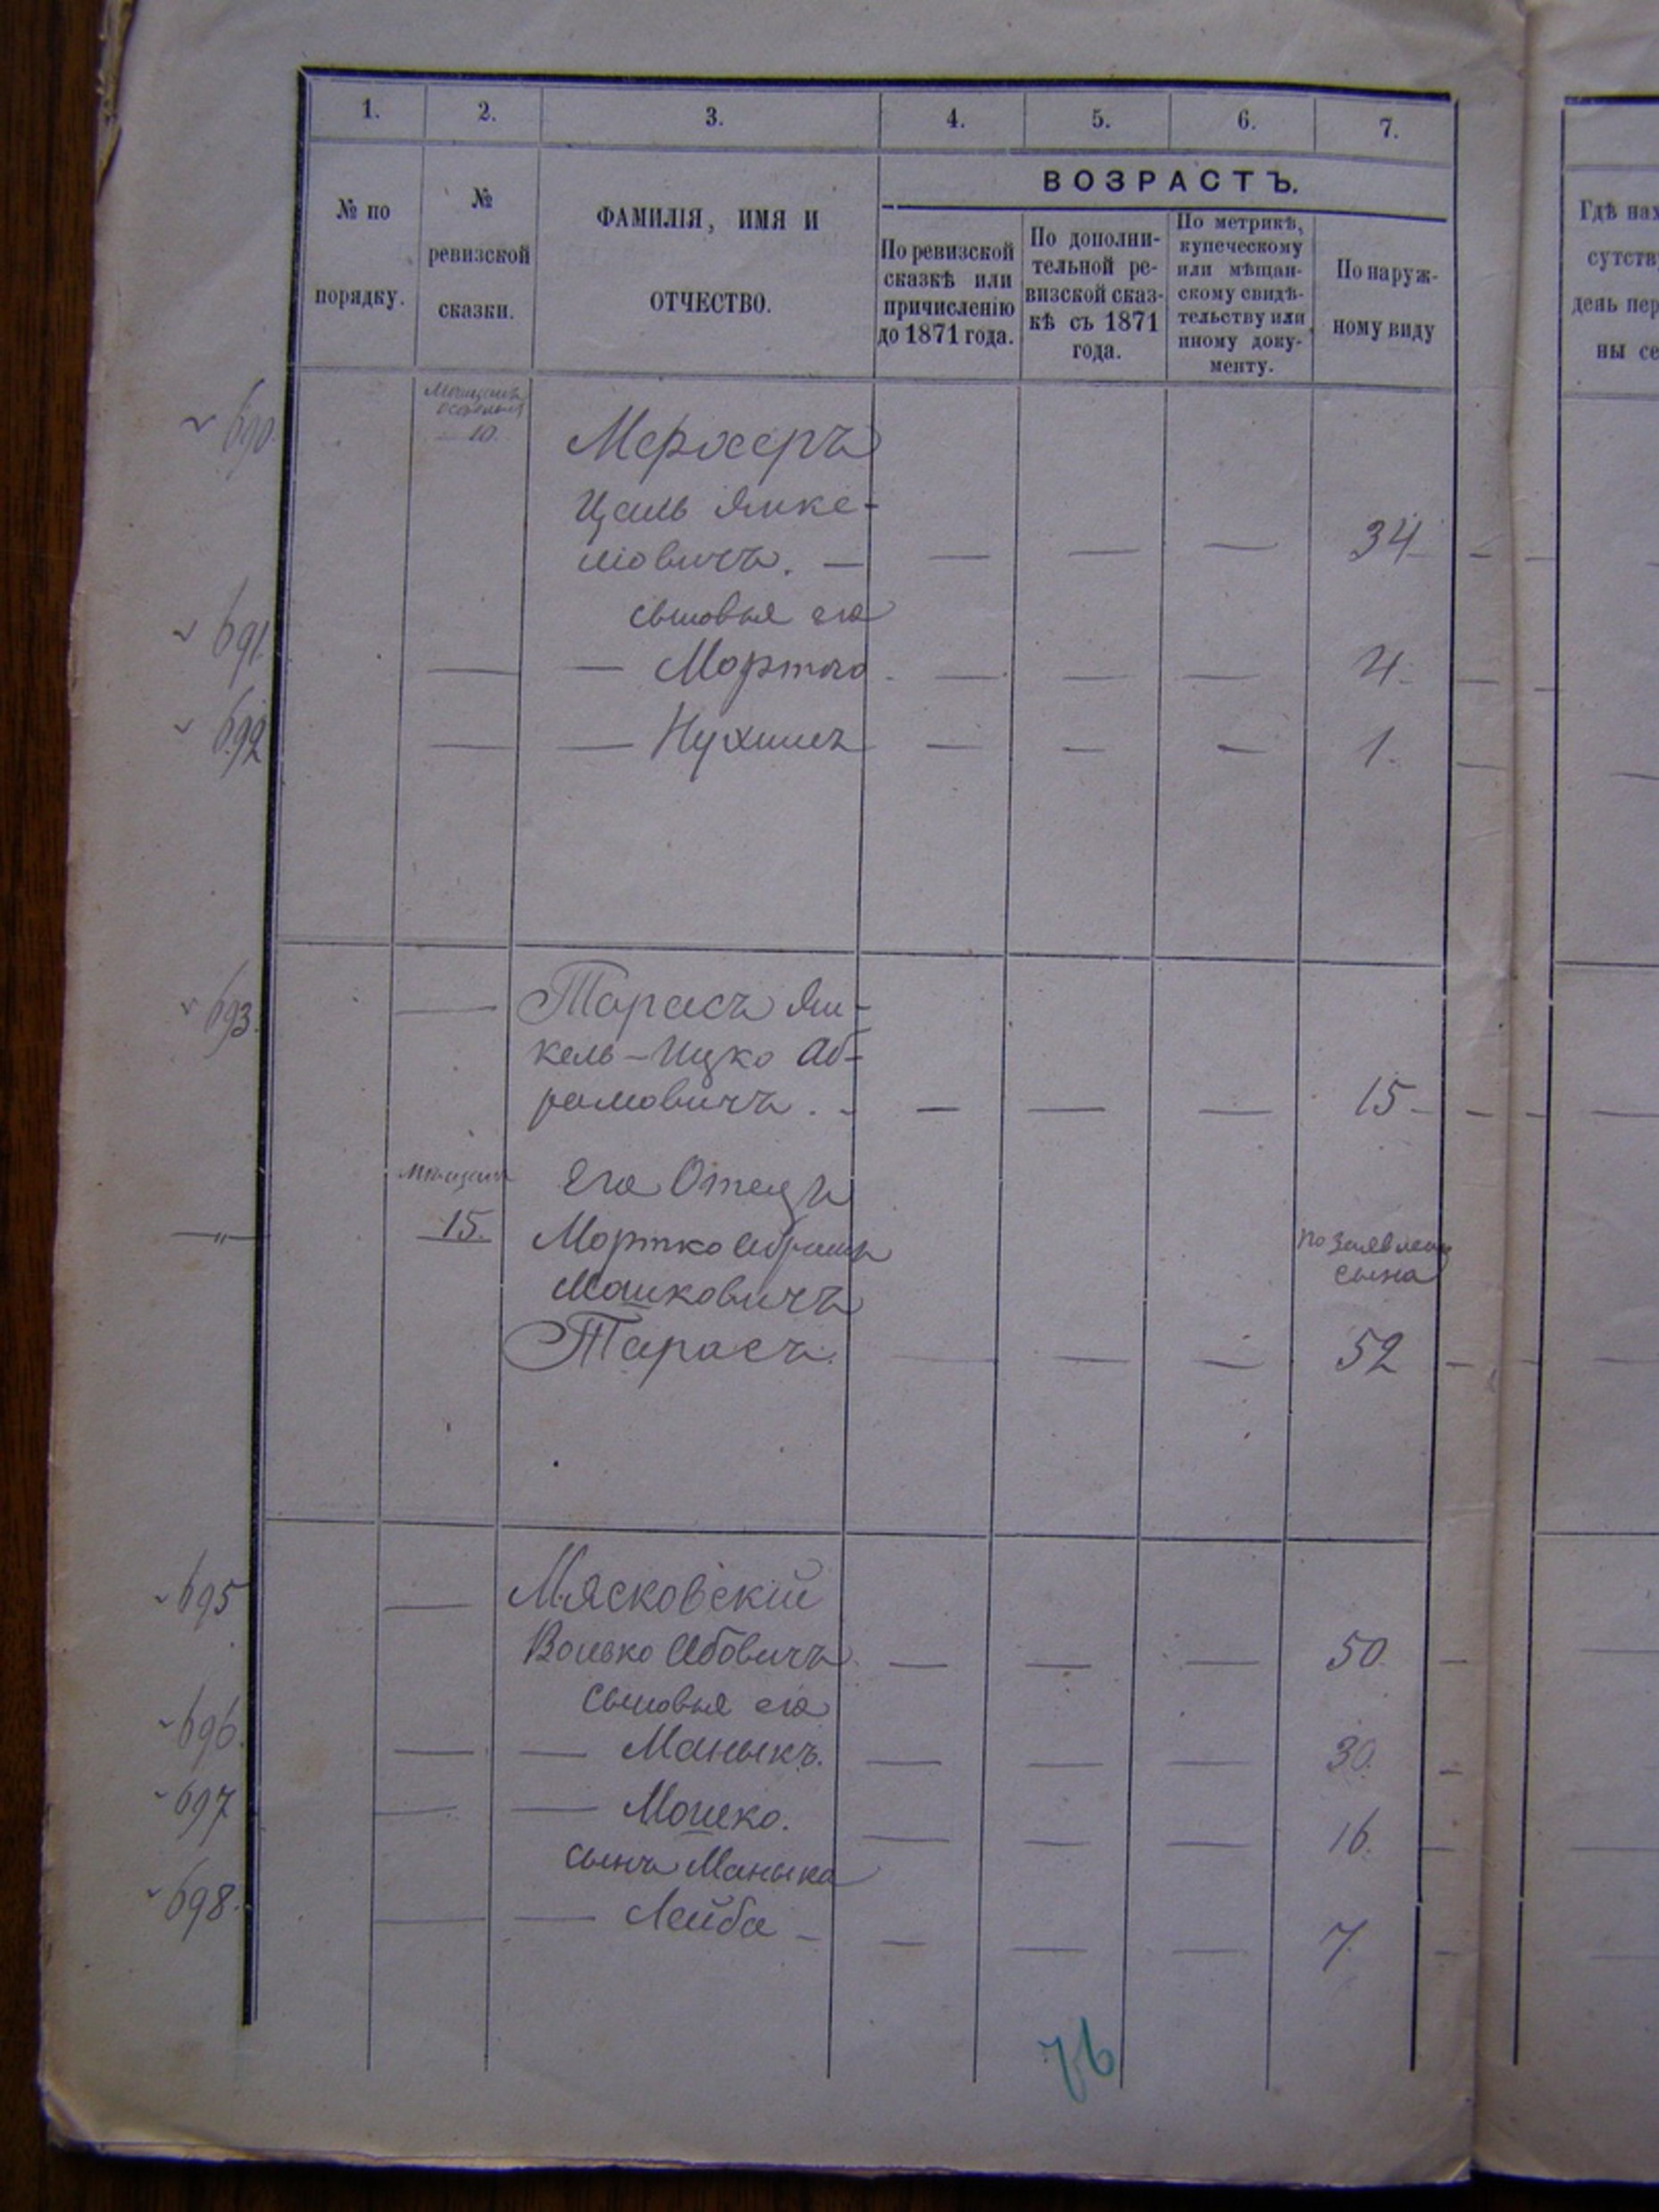 1. 2. 3. 4. 5. 6. 7.
№ по
порядку.
№
ревизской
сказки.
ФАМИЛІЯ, ИМЯ И
ОТЧЕСТВО.
ВОЗРАСТЪ.
По ревизской
сказкѣ или
причисленію
до 1871 года.
По дополни-
тельной ре-
визской сказ-
кѣ съ 1871
года.
По метрикѣ,
купеческому
или мѣщан-
скому свидѣ-
тельству или
иному доку-
менту.
По наруж-
ному виду
Гдѣ нах
сутств
день пер
ны се
690. 10.
Цаль Янке-
левичъ. — — — — 34
сыновья его
691. — — Мортко — — — 4.
692 — — Нухимъ — — — 1.
693. — Тарасъ Ян-
кель-Ицко Аб-
рамовичъ. — — — 15
Мѣщан Его Отецъ
—„— 15. Мортко Абрамъ По заявлен
Мошковичъ сына
Тарасъ. — — — 52
695 — Мясковскій
Волько Абовичъ — — — 50.
сыновья его
696. — — Маныкъ. — — — 30.
697 — — Мошко. — — — 16.
сынъ Маныка
698. — — Лейба — — — 7.
76